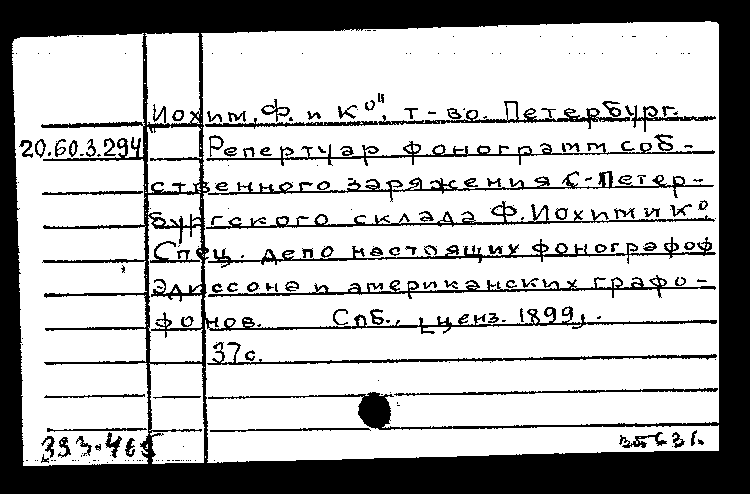 Иохим, Ф. и К°", т-во. Петербург.
20.60.3.294 Репертуар фонограмм соб-
ственного заряжения С-Петер-
бургского склада Ф. Иохим и К°.
Спец. депо настоящих фонографоф
Эдиссона и американских графо-
фонов. Спб., [ценз. 1899].
37с.
393-465